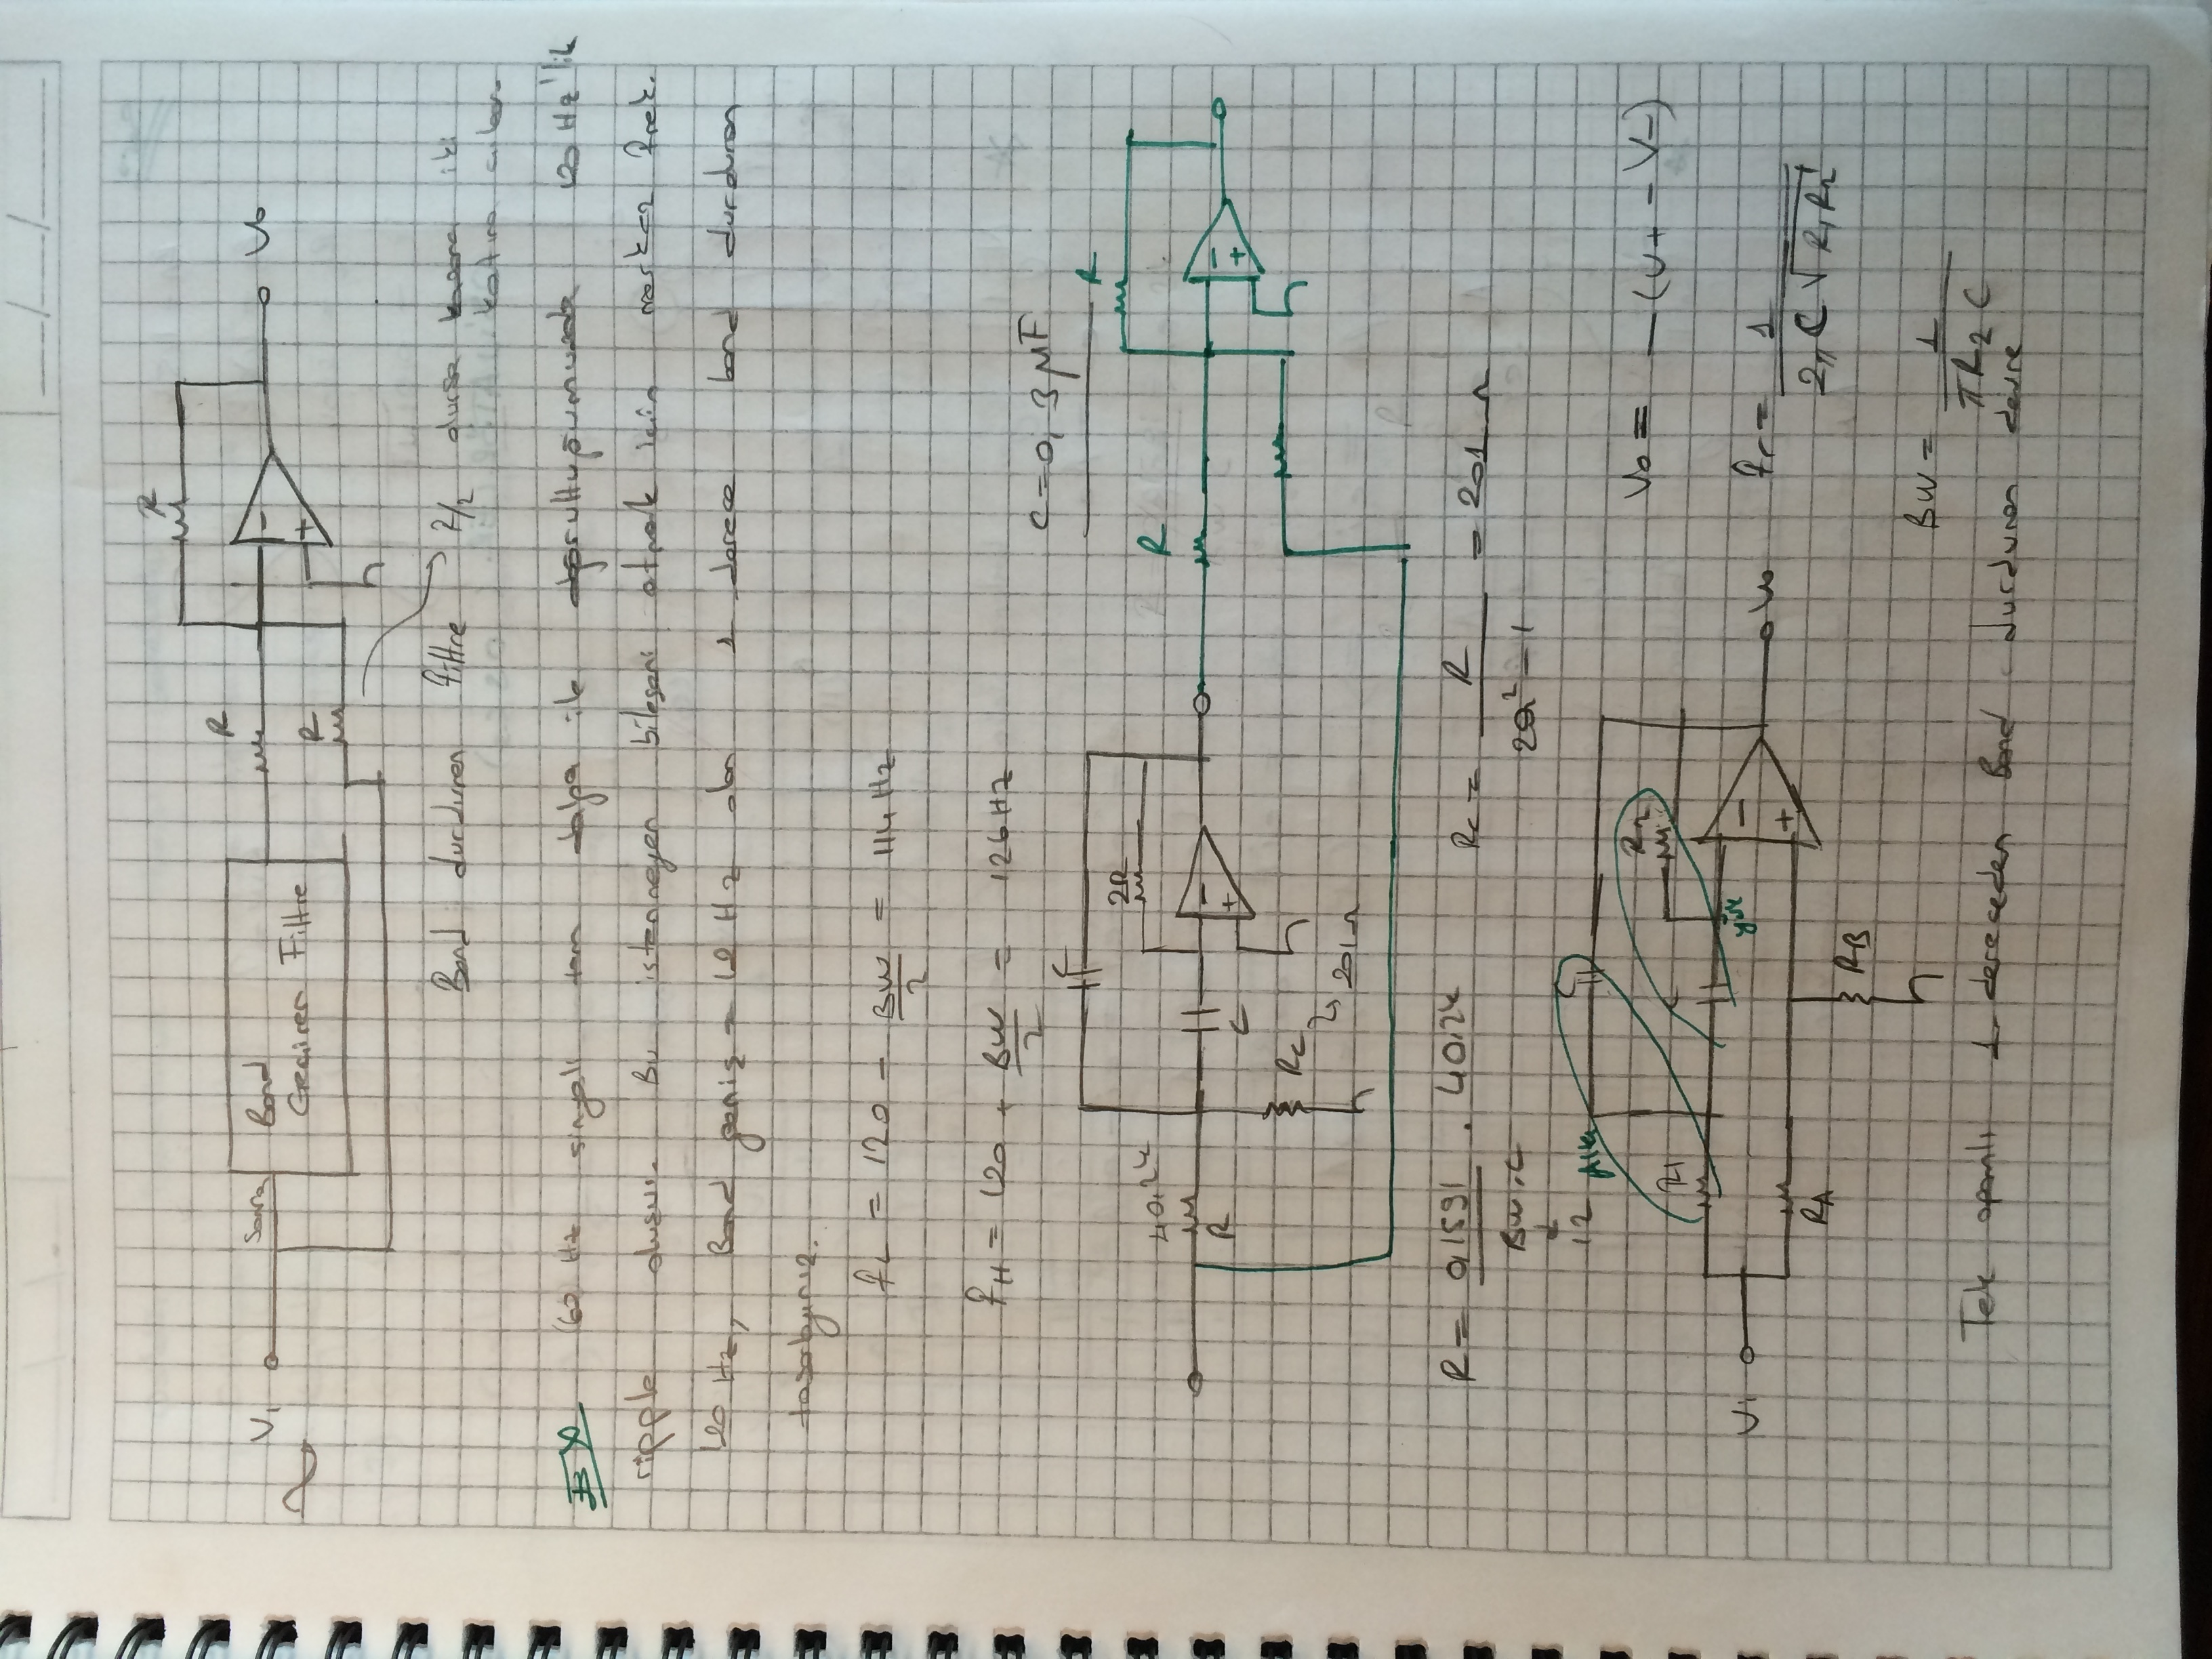 R
V₁ Band R − V₀
Geçiren Filtre R +
Band durduran filtre R/2 olursa iki
katına çıkar.
EX 60 Hz sinyali tam dalga ile doğrulttuğumuzda 120 Hz'lik
ripple oluşur. Bu istenmeyen bileşeni atmak için merkez frek.
120 Hz, Band geniş = 12 Hz olan 1 derece band durduran
tasarlayınız.
fL = 120 − BW/2 = 114 Hz
fH = 120 + BW/2 = 126 Hz
C = 0,3 μF
C R
2R
40.2k R
R C − + − +
Rc
201Ω
R = 0,1591/BW.C . 40.2k Rc = R/(2Q² − 1) = 201 Ω
12
C
Alç
R₂ V₀ = −(V+ − V−)
R₁ C
yük
Vi − + V₀ fr = 1/(2π C √R₁R₂)
RA
RB
BW = 1/(πR₂C)
Tek opamlı 1. dereceden Band durduran devre